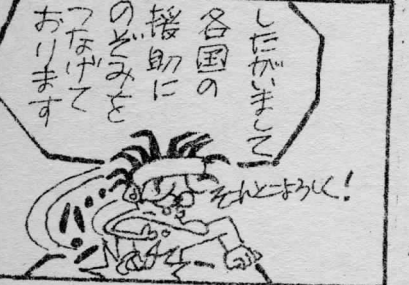 したがいまして
各国の
援助に
のぞみを
つなげて
おります
それとーよろしく!